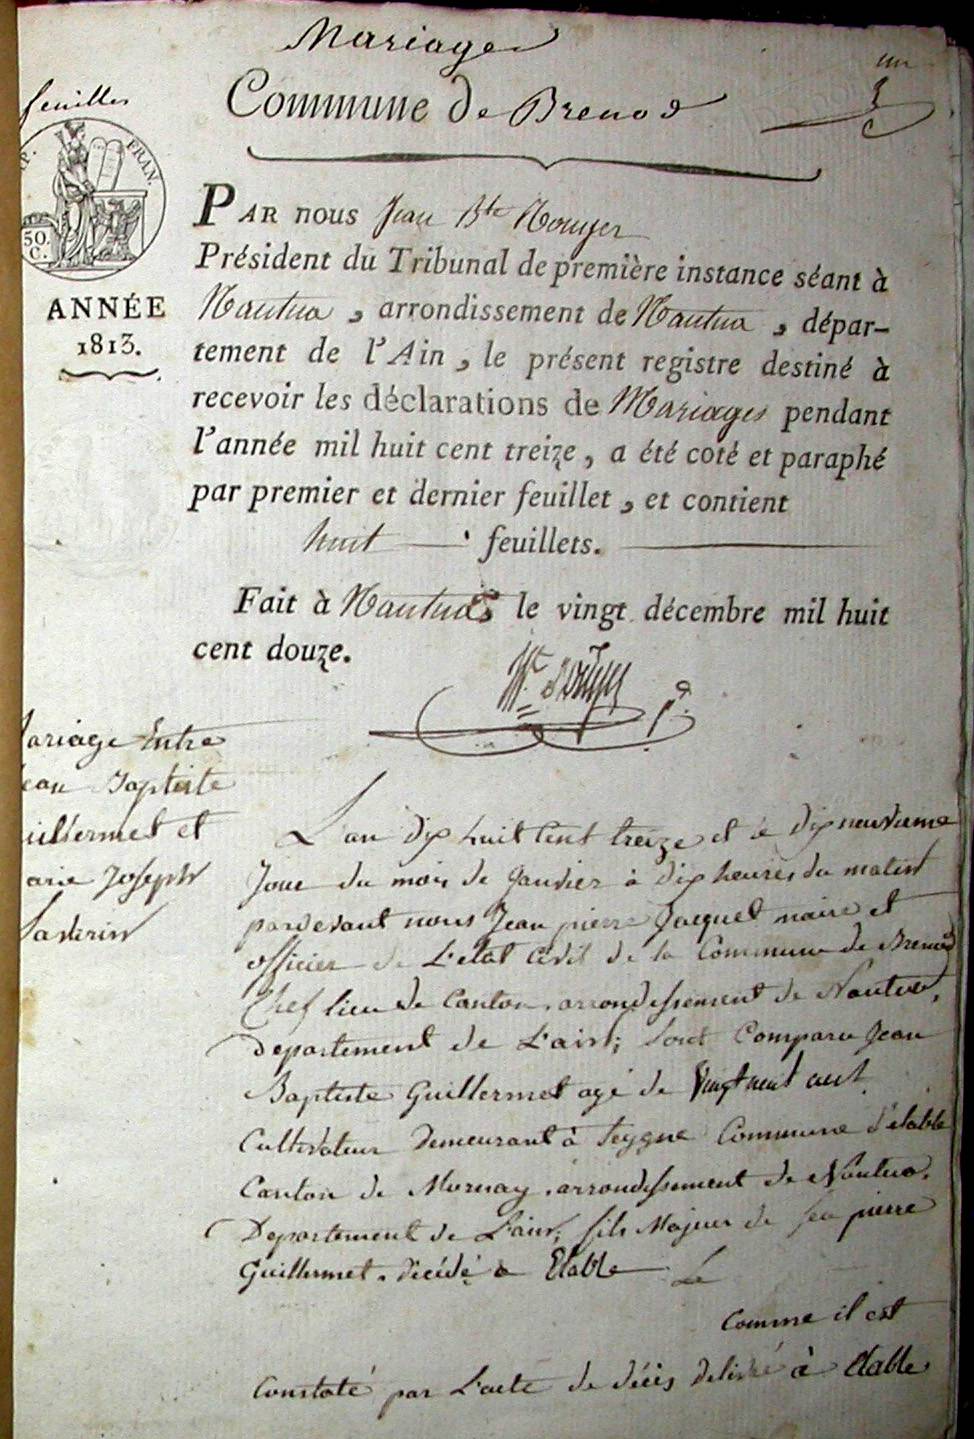 Mariages
un
Commune de Brenod
feuilles
FRAN.
50.
C.
ANNÉE
1813.
PAR nous Jean Bte Rouyer
Président du Tribunal de première instance séant à
Nantua, arrondissement de Nantua, dépar-
tement de l'Ain, le présent registre destiné à
recevoir les déclarations de Mariages pendant
l'année mil huit cent treize, a été coté et paraphé
par premier et dernier feuillet, et contient
huit feuillets.
Fait à Nantua, le vingt décembre mil huit
cent douze.
ariage Entre
ean Baptiste
uillermet et
arie Joseph
L'an dix huit cent treize et le dix neuvieme
Jour du mois de Janvier à dix heures du matin
pardevant nous Jean pierre Jacquet maire et
officier de L'etat Civil de la Commune de Brenod
Chef lieu de Canton, arrondissement de Nantua,
departement de L'ain; sont Comparu Jean
Baptiste Guillermet agé de Vingt neuf ans
Cultivateur demeurant à Commune d'étable
Canton de Mornay, arrondissement de Nantua,
Departement de L'ain, fils Majeur de feu pierre
Guillermet, décédé a Etable Le
Comme il est
Constaté par L'acte de décès delivré à Etable